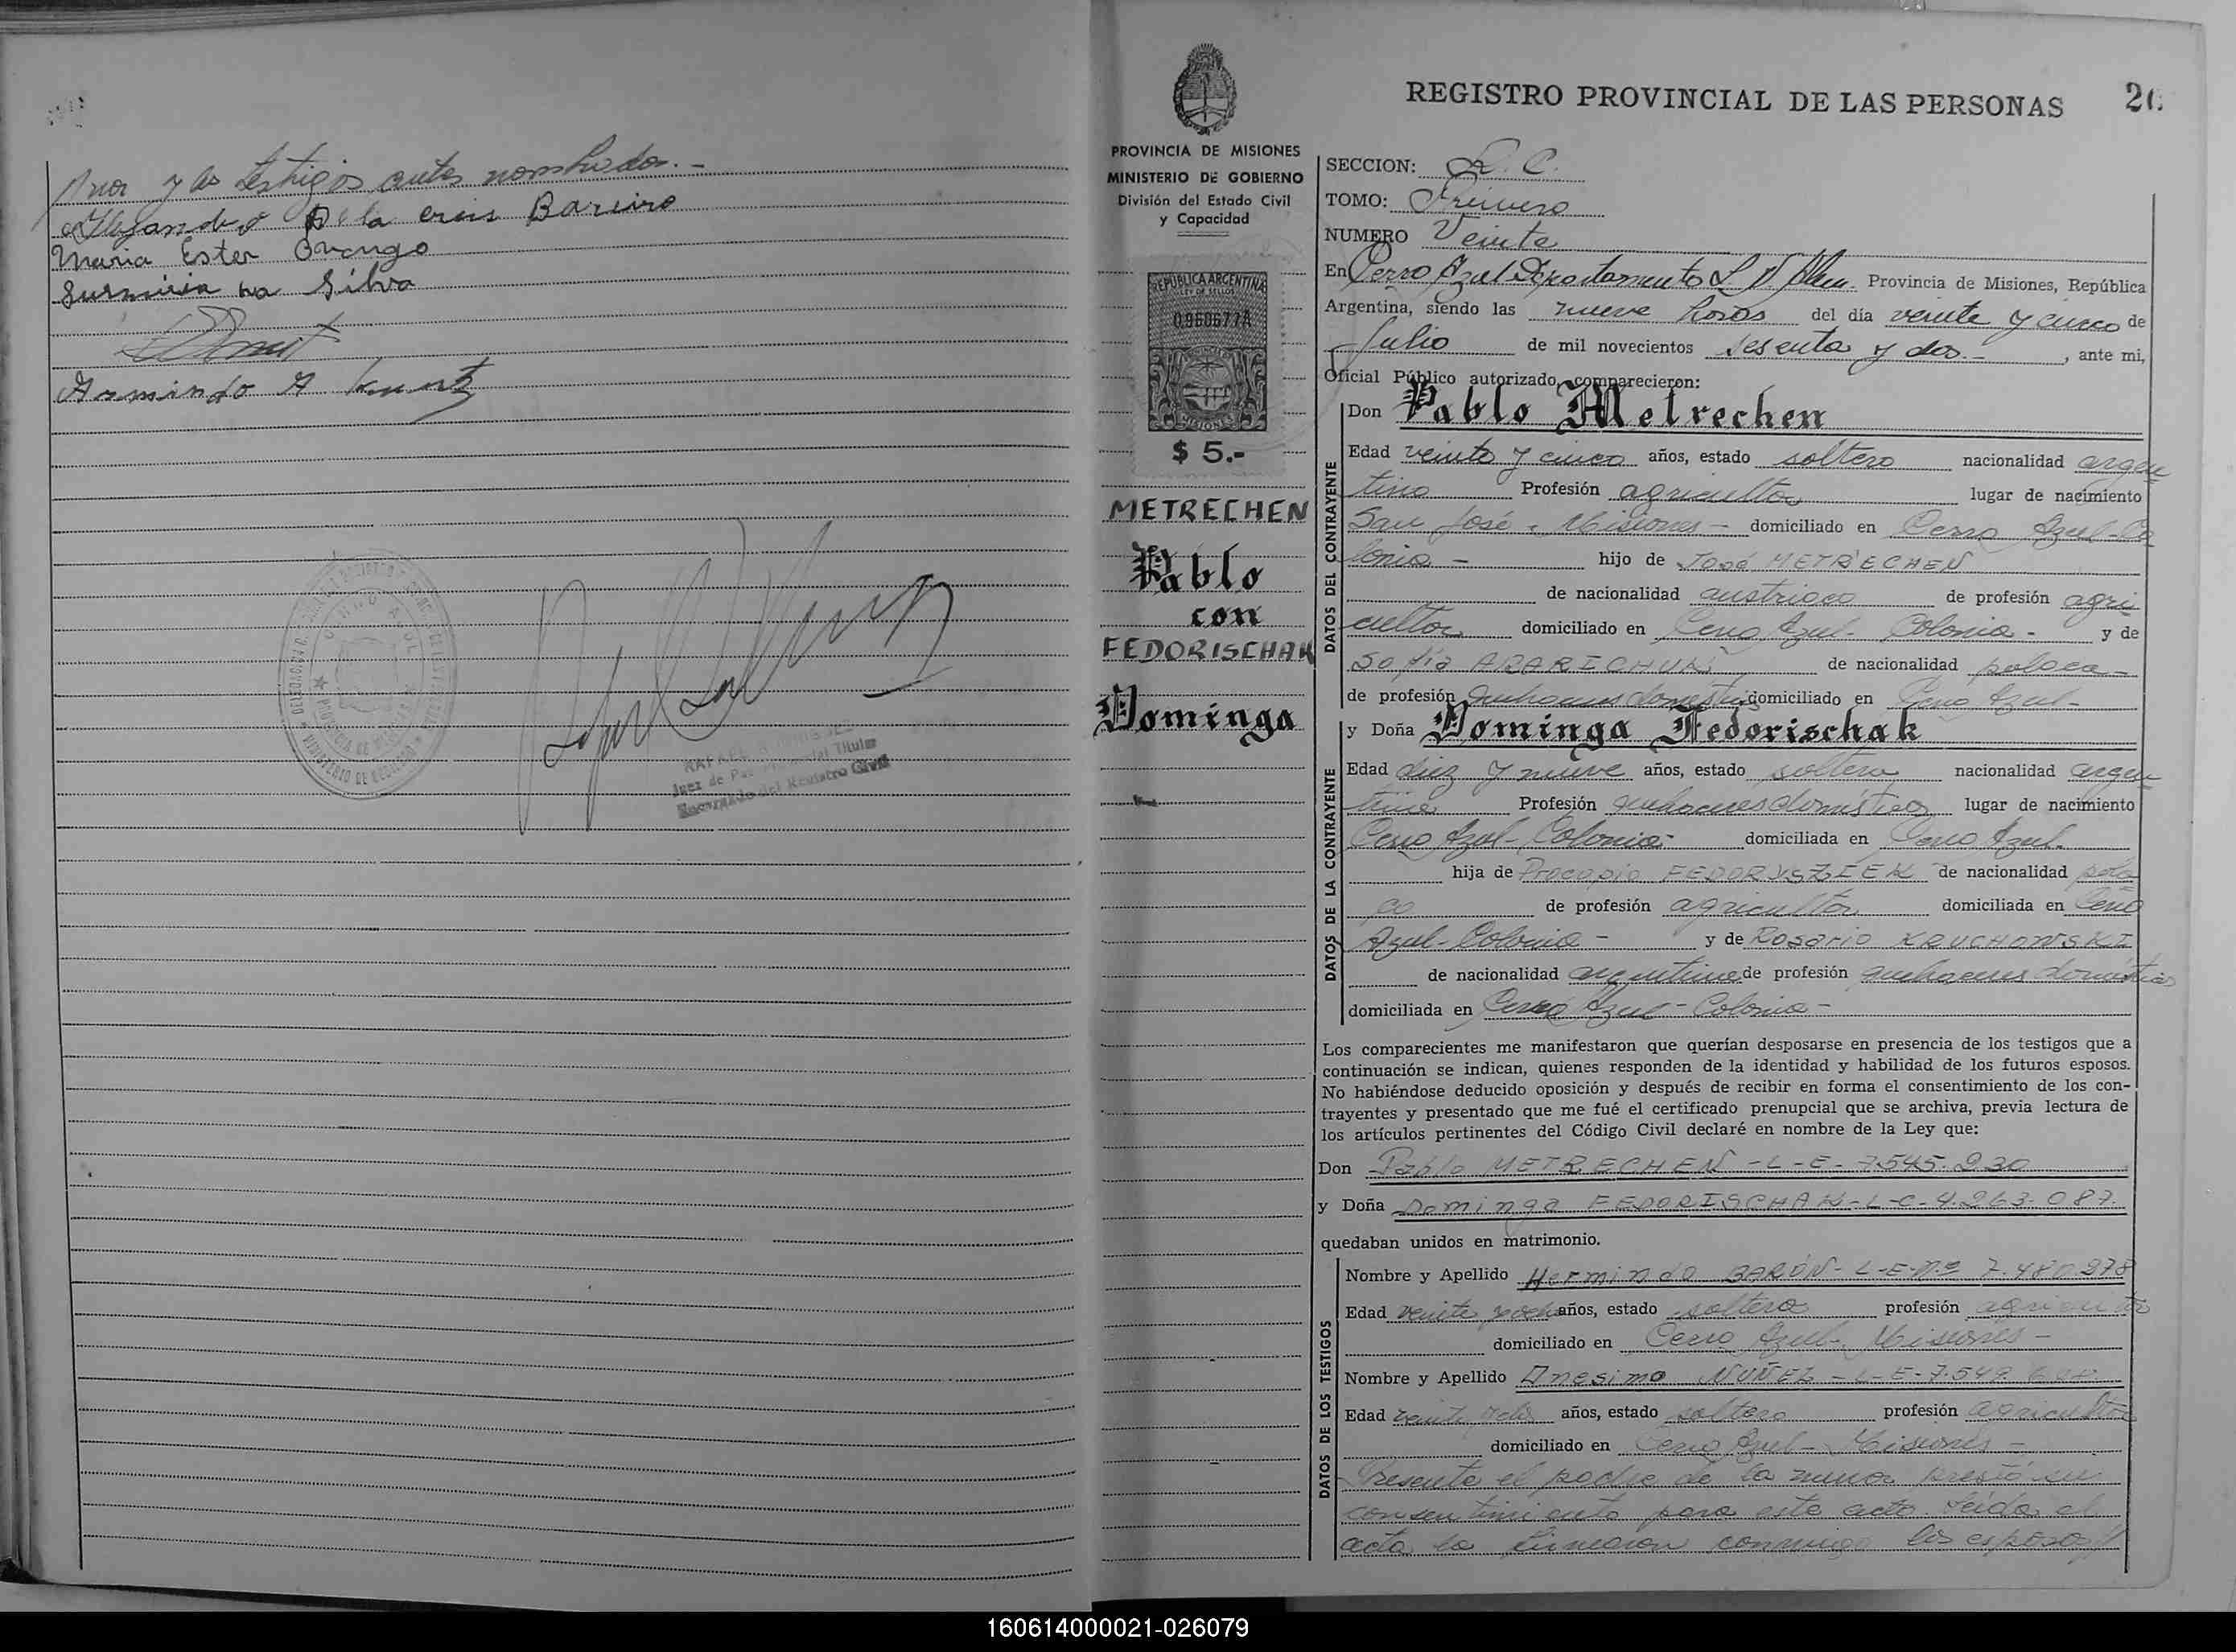 y los testigos antes nombrados.-
Alejandro De la cruis Bareiro
Maria Ester
Silva
Armindo A Kuntz
Juez de Paz Titular
Encargado del Registro Civil
REGISTRO PROVINCIAL DE LAS PERSONAS
PROVINCIA DE MISIONES
MINISTERIO DE GOBIERNO
División del Estado Civil
y Capacidad
REPUBLICA ARGENTINA
LEY DE SELLOS
MISIONES
$ 5.-
METRECHEN
Pablo
con
FEDORISCHAK
Dominga
SECCION: C.
TOMO: Primero
NUMERO Veinte
En Cerro Azul Departamento L. N. Alem. Provincia de Misiones, República
Argentina, siendo las nueve horas del día veinte y cinco de
Julio de mil novecientos sesenta y dos.- , ante mi,
Oficial Público autorizado, comparecieron:
Don Pablo Metrechen
DATOS DEL CONTRAYENTE
Edad veinte y cinco años, estado soltero nacionalidad argen-
tino Profesión agricultor lugar de nacimiento
San José - Misiones - domiciliado en Cerro Azul-Co-
lonia - hijo de José METRECHEN
de nacionalidad austriaco de profesión agri-
cultor domiciliado en Cerro Azul- Colonia - y de
Sofía ARARICHUK de nacionalidad polaca-
de profesión quehaceres domésticos domiciliado en Cerro Azul-
y Doña Dominga Fedorischak
DATOS DE LA CONTRAYENTE
Edad diez y nueve años, estado soltera nacionalidad argen-
tina Profesión quehaceres domésticos lugar de nacimiento
Cerro Azul-Colonia- domiciliada en Cerro Azul.
hija de Procopio FEDORYSZEEK de nacionalidad pola-
co de profesión agricultor domiciliada en Cerro
Azul-Colonia - y de Rosario KRUCHOWSKI
de nacionalidad argentina de profesión quehaceres domésticos
domiciliada en Cerro Azul-Colonia-
Los comparecientes me manifestaron que querían desposarse en presencia de los testigos que a
continuación se indican, quienes responden de la identidad y habilidad de los futuros esposos.
No habiéndose deducido oposición y después de recibir en forma el consentimiento de los con-
trayentes y presentado que me fué el certificado prenupcial que se archiva, previa lectura de
los artículos pertinentes del Código Civil declaré en nombre de la Ley que:
Don Pablo METRECHEN -L-E- 7.545.230
y Doña Dominga FEDORISCHAK-L-C-4.263.087.
quedaban unidos en matrimonio.
DATOS DE LOS TESTIGOS
Nombre y Apellido Hermindo BARÓN- L-E-Nº 7.480.278
Edad veinte y ocho años, estado soltero profesión agricultor
domiciliado en Cerro Azul- Misiones-
Nombre y Apellido Anesimo NUÑEZ -L-E-7.549.
Edad veinte años, estado soltero profesión agricultor
domiciliado en Cerro Azul- Misiones -
Presente el padre de la menor prestó su
consentimiento para este acto. Leída el
acta la firmaron conmigo los esposos
160614000021-026079